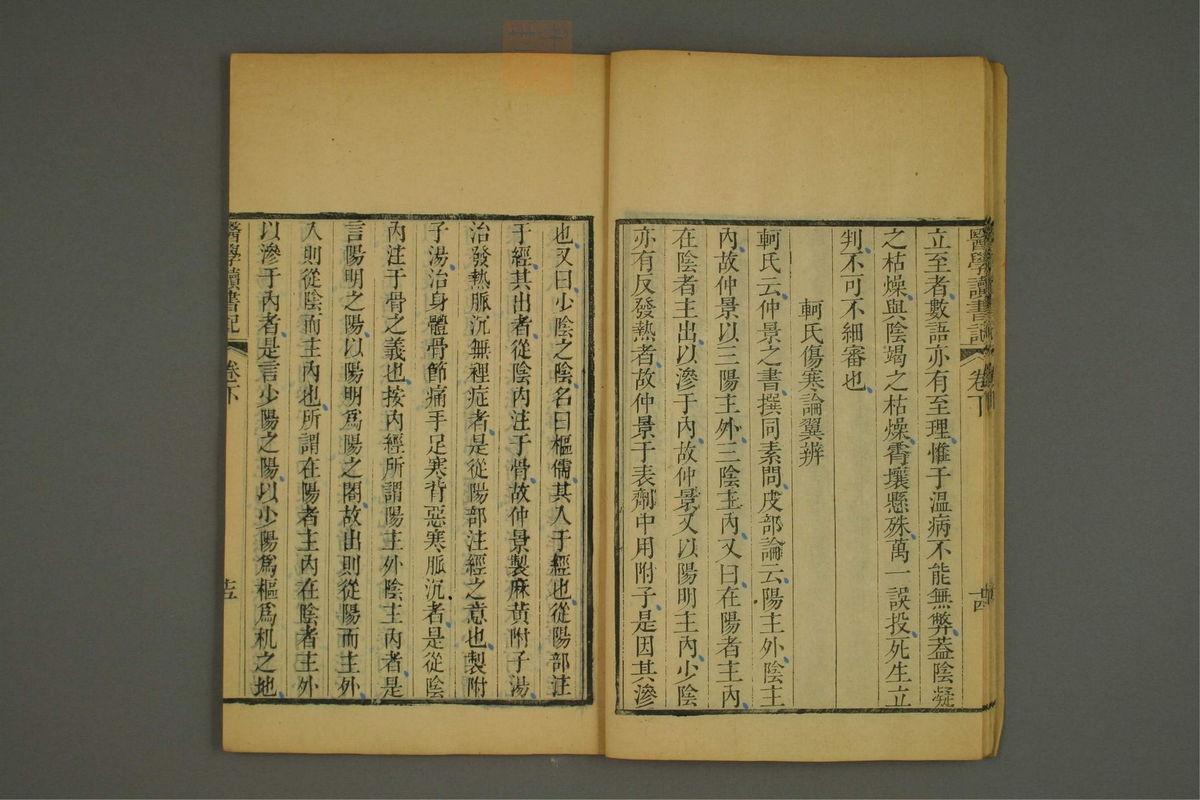 醫學讀書記 卷下 廿四
立至者數語亦有至理惟于温病不能無弊葢陰凝
之枯燥與陰竭之枯燥霄壤懸殊萬一誤投死生立
判不可不細審也
軻氏傷寒論翼辨
軻氏云仲景之書撰同素問皮部論云陽主外陰主
內故仲景以三陽主外三陰主內又曰在陽者主內
在陰者主出以滲于內故仲景又以陽明主內少陰
亦有反發熱者故仲景于表劑中用附子是因其滲
也又曰少陰之陰名曰樞儒其入于經也從陽部注
于經其出者從陰內注于骨故仲景製麻黃附子湯
治發熱脈沉無裡症者是從陽部注經之意也製附
子湯治身體骨節痛手足寒背惡寒脈沉者是從陰
內注于骨之義也按內經所謂陽主外陰主內者是
言陽明之陽以陽明爲陽之闔故出則從陽而主外
入則從陰而主內也所謂在陽者主內在陰者主外
以滲于內者是言少陽之陽以少陽爲樞爲机之地
醫學讀書記 卷下 廿五